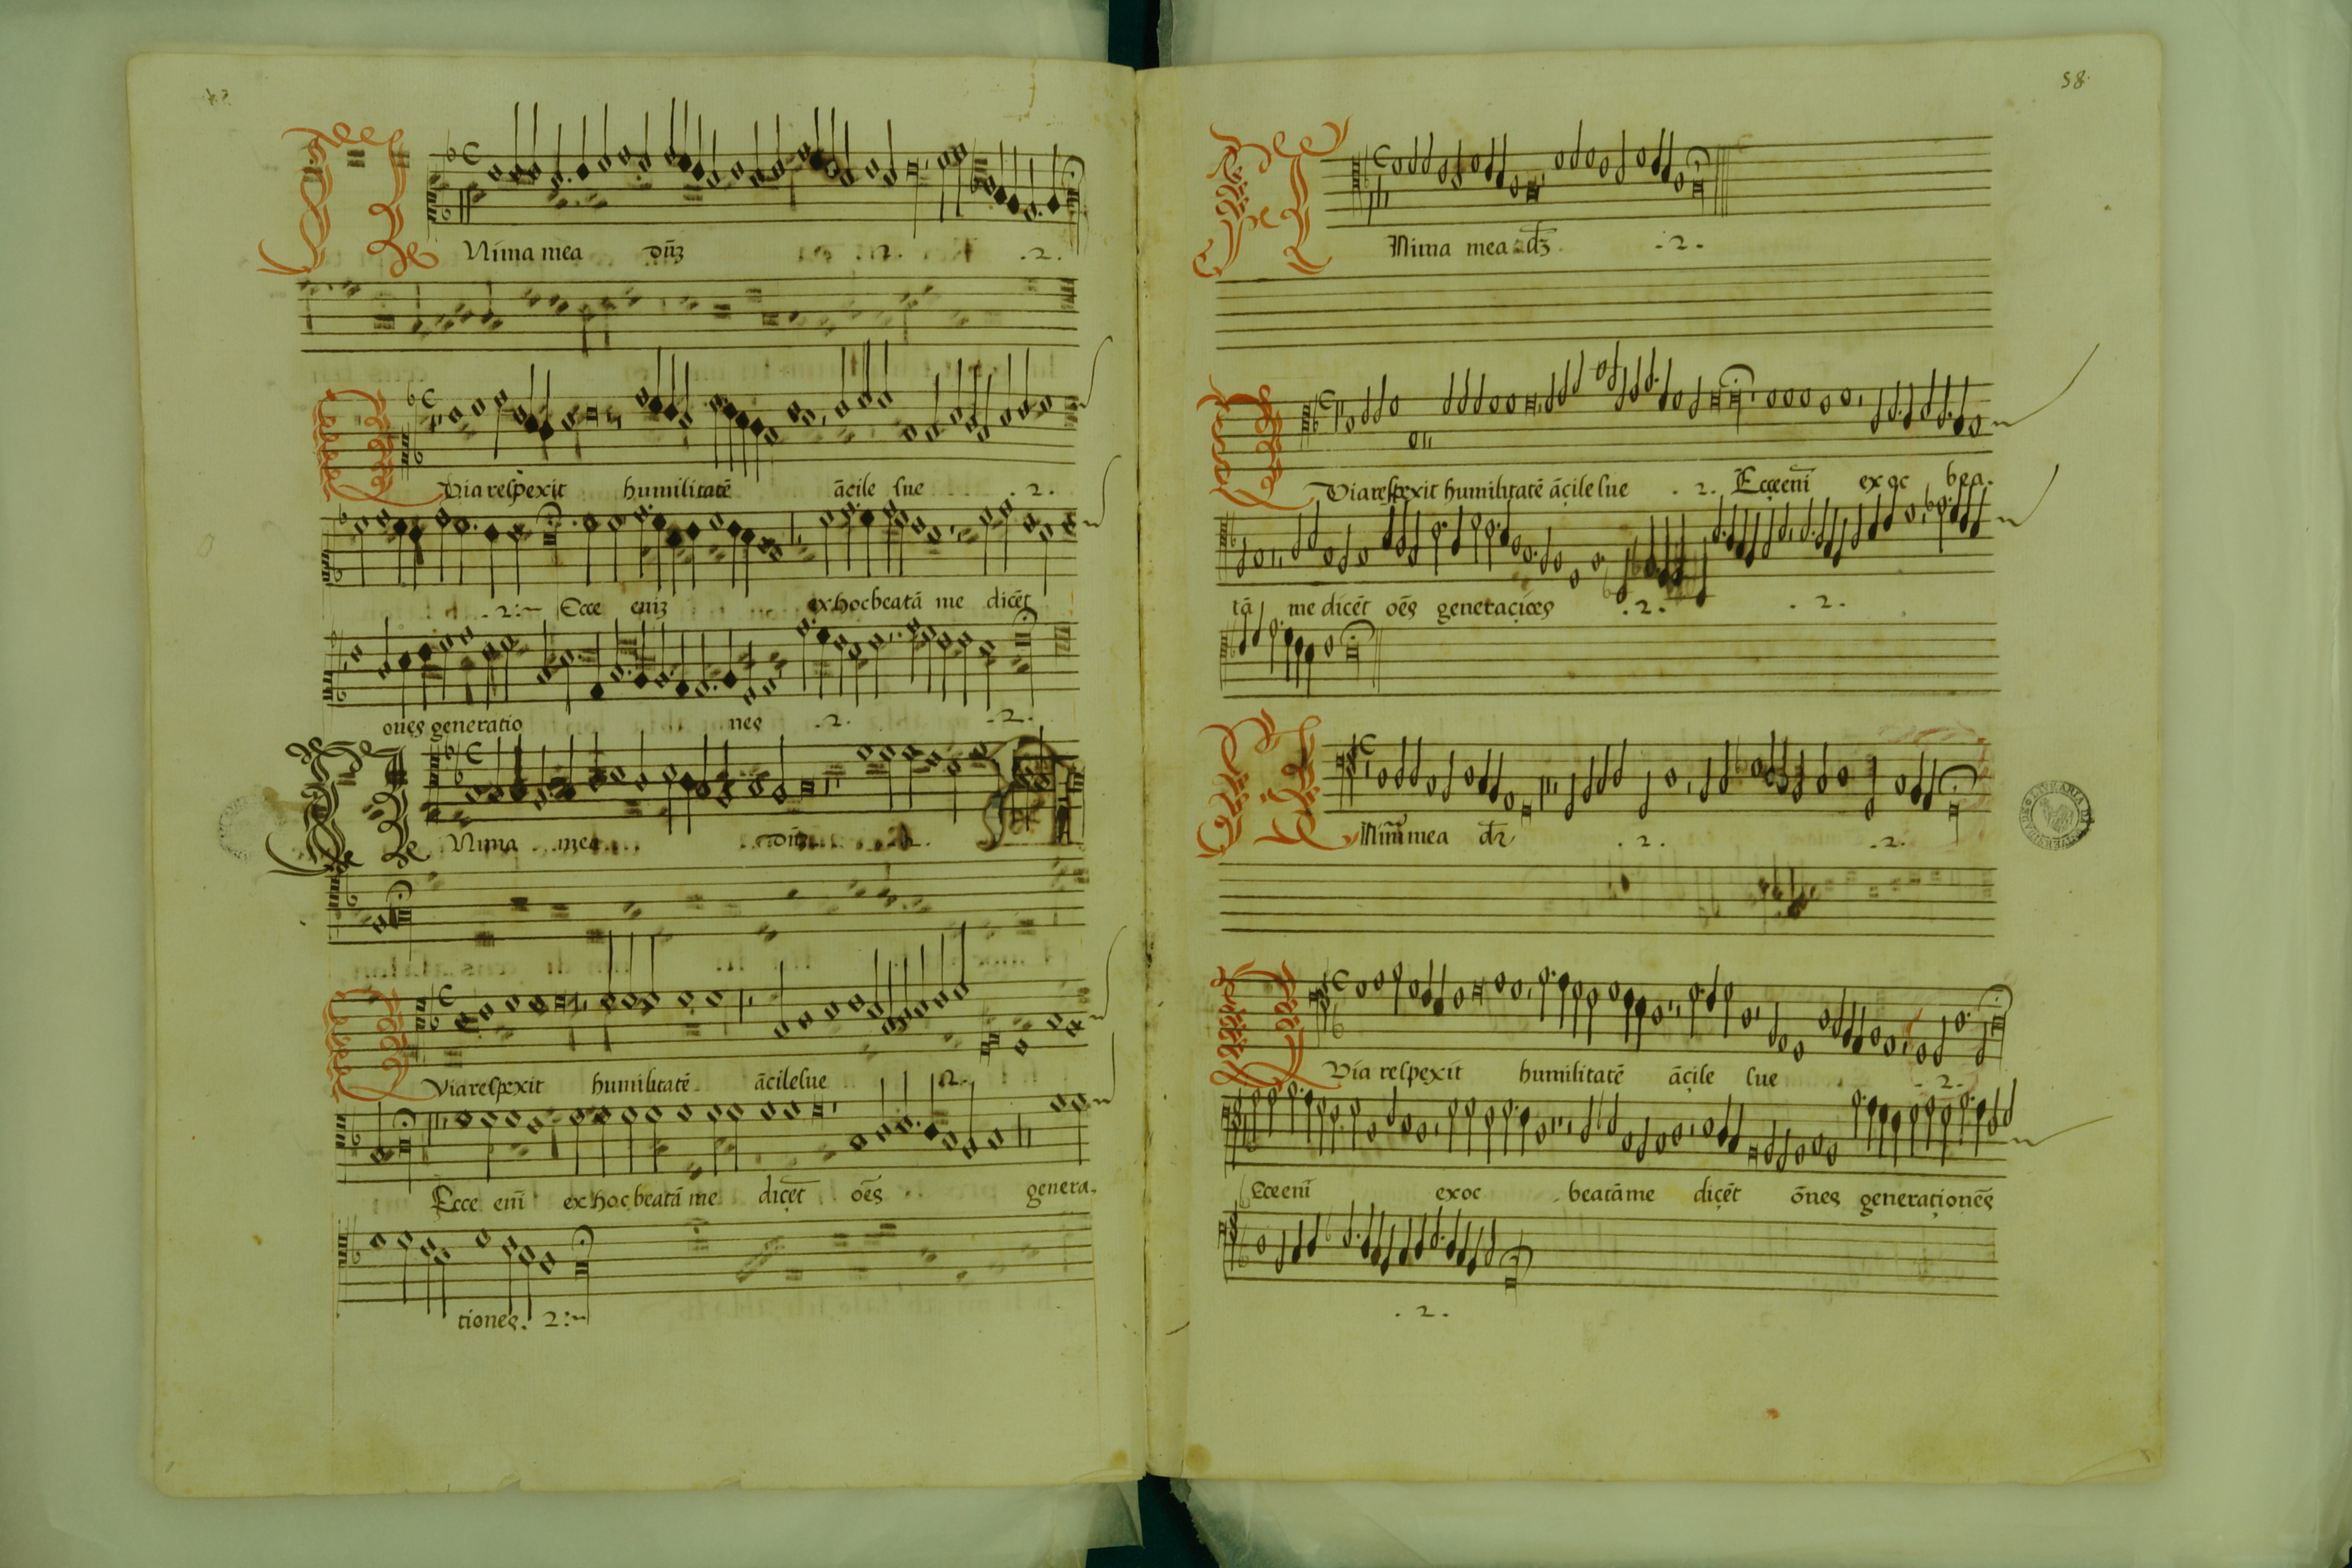 Nima mea dñz .2. .2.
Via respexit humilitatē ācile sue .2.
.2. Ecce eniz ex hoc beatā me dicēt
ones generatio nes .2. .2.
Nima mea dñz .2.
Via respexit humilitatē ācile sue .2.
Ecce enī ex hoc beatā me diçēt oēs genera.
tiones. 2
58.
Nima mea dz .2.
Via respexit humilitatē ācile sue .2. Ecce enī ex oc bea.
tā me dicēt oēs .2. .2.
mea .2. .2.
Via respexit humilitatē āçile sue .2.
Ecce enī ex oc beatā me diçēt ōnes generationēs
.2.